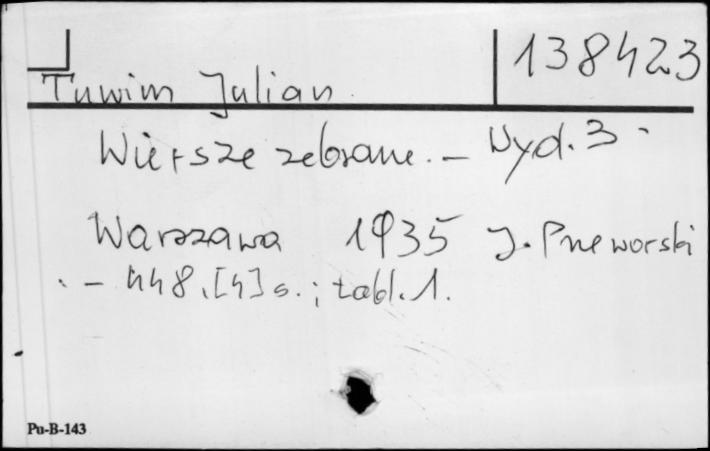 138423
Tuwim Julian
Wiersze zebrane. – Wyd. 3
Warszawa 1935 J. Przeworski
– 448, [4] s. ; tabl. 1.
Pu-B-143